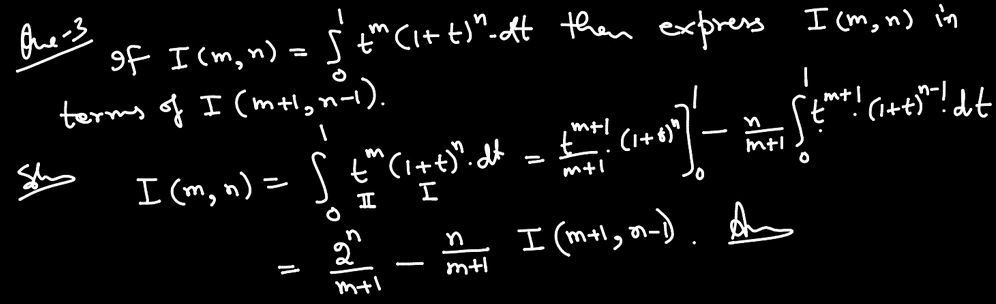 Que-3 If I(m,n) = ∫₀¹ t^m (1+t)^n.dt then express I(m,n) in
terms of I(m+1,n-1).
Soln I(m,n) = ∫₀¹ t^m (1+t)^n.dt = t^{m+1}/(m+1) . (1+t)^n]₀¹ - n/(m+1) ∫₀¹ t^{m+1}. (1+t)^{n-1}.dt
II I
= 2^n/(m+1) - n/(m+1) I(m+1,n-1). Ans